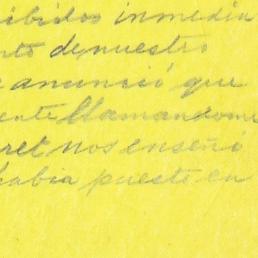 ibidos inmedia
nto de nuestro
anunció que
ente llamandome
ret nos enseñó
habia puesto en